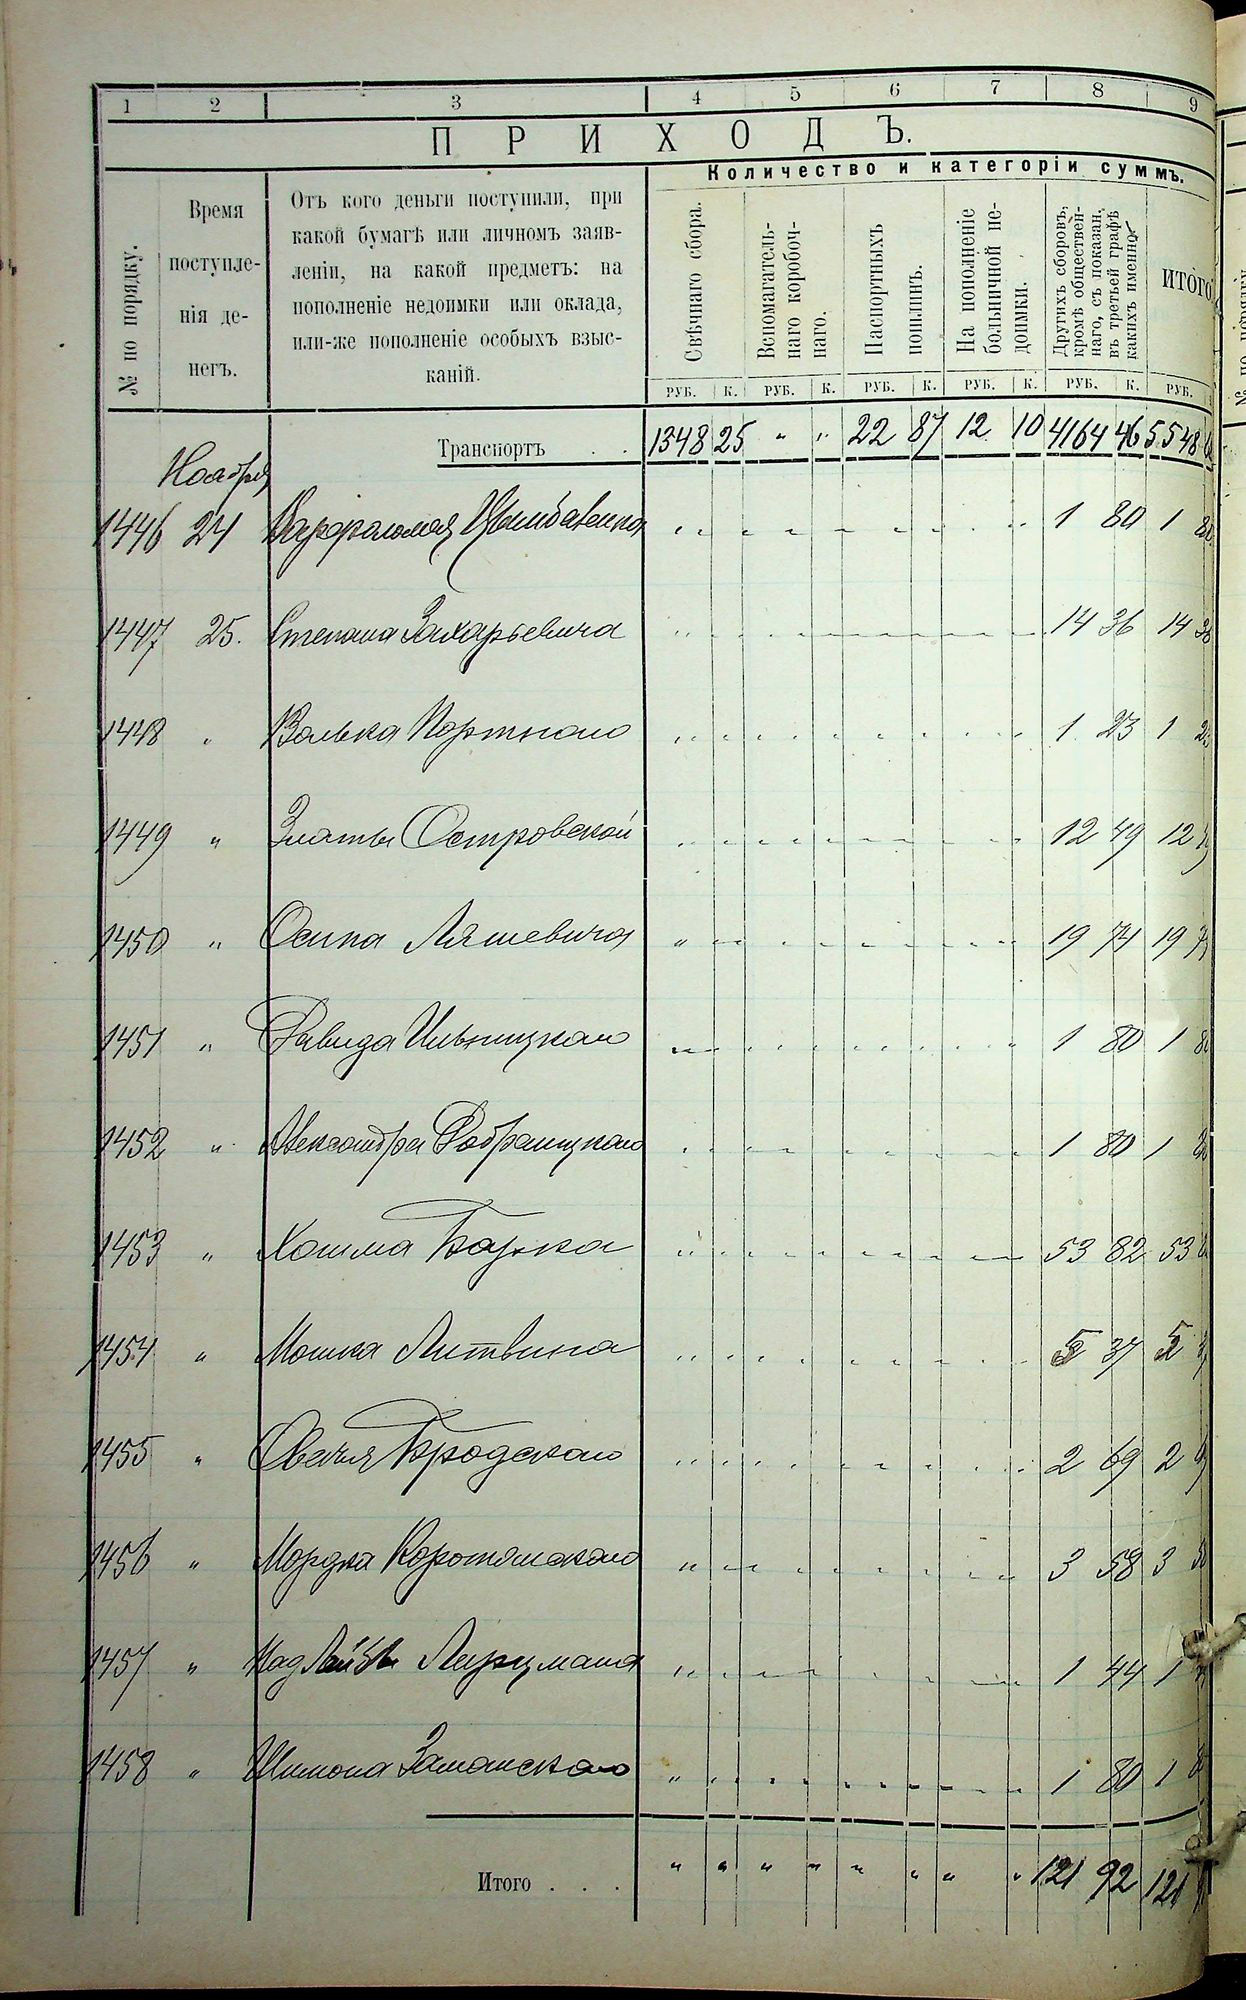 1 2 3 4 5 6 7 8 9
ПРИХОДЪ.
Количество и категоріи суммъ.
№ по порядку.
Время поступле-
нія де-
негъ.
Отъ кого деньги поступили, при
какой бумагѣ или личномъ заяв-
леніи, на какой предметъ: на
пополненіе недоимки или оклада,
или-же пополненіе особыхъ взыс-
каній.
Свѣчнаго сбора.
Вспомагатель-
наго коробоч-
наго.
Паспортныхъ
пошлинъ.
На пополненіе
больничной не-
доимки.
Другихъ сборовъ,
кромѣ обществен-
наго, съ показан.
въ третьей графѣ
какихъ именно
ИТОГО
РУБ. К. РУБ. К. РУБ. К. РУБ. К. РУБ. К. РУБ.
Транспортъ . . 1348 25 " " 22 87 12 10 4164 46 5548
Ноября
1446 24 1 80 1 80
1447 25. Степана Захарьевича 14 36 14 36
1448 " Волька Портного 1 23 1 23
1449 " Златы Островской 12 49 12 49
1450 " Осипа Ляшевича 19 74 19 74
1451 " Давида Ильницкаго 1 80 1 80
1452 " Александра 1 80 1 80
1453 " 53 82 53
1454 " Мошка Литвина 5 37 5
1455 " Овсея Бродскаго 2 69 2
1456 " Мордка 3 58 3 58
1457 " 1 44 1
1458 " Шимона Заманскаго 1 80 1
Итого . . . " " " " " " " " 121 92 121